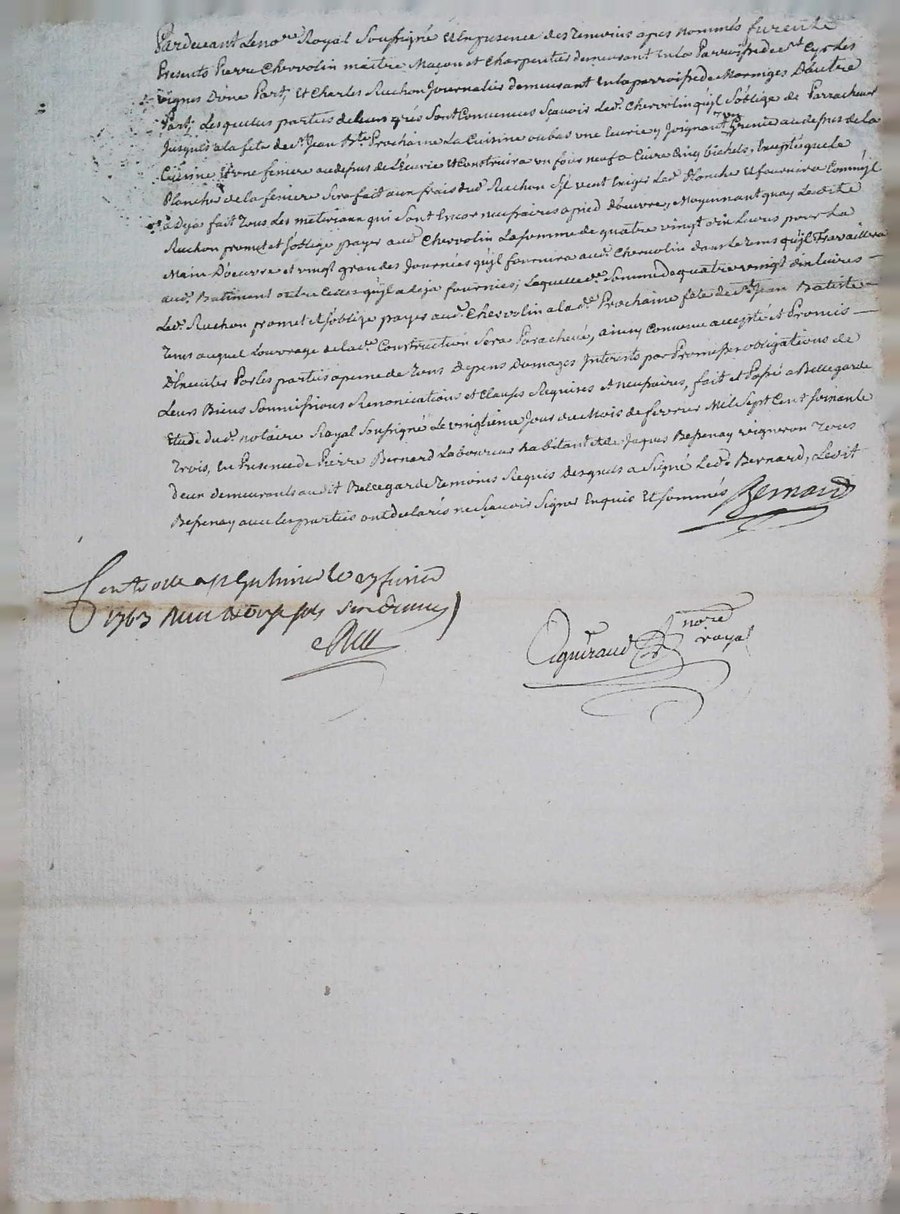 Pardevant Le no.re Royal Soussigné et En presence des temoins apes nommés furent
Presents Pierre Chervolin maitre Maçon et Charpentier demeurant En la Parroisse de S.t Cyr les
vignes D'une Part, et Charles Ruchon Journalier demeurant En la parroisse de D'autre
Part, Lesquelles parties de leurs grés sont Convenues Scavoir Led. Chervolin quil s'oblige de Parrachever
Jusques a la fete de s.t Jean B.te Prochaine La Cuisine ou bas une Ecurie y Joignant au dessus de la
Cuisine et une feniere au dessus de L'écurie et Construira un four neuf a Cuire Cinq bichets, que la
Planche de la feniere sera fait aux frais dud. Ruchon S'il veut Exiger Lad. Planche et fournira Comme il
a deja fait Tous Les materiaux qui sont Encor necessaires a pied D'oeuvre, Moyennant quoy Le dit
Ruchon promet et s'oblige payer aud. Chervolin La somme de quatre vingt dix Livres pour La
Main D'oeuvre et vingt grandes Journées quil fournira aud. Chervolin dans Le tems quil Travaillera
aud. Batiment outre Celles quil a deja fournies; Laquelle d. Somme de quatre vingt dix Livres
Led. Ruchon promet et s'oblige payer aud. Chervolin a lad. Prochaine fete de S.t Jean Batiste
Tems auquel L'ouvrage de lad. Construction Sera Parachevé, ainsy Convenu accepté et Promis
D'Executer Par les parties a peine de Tous Depens Domages Interets par Promesses obligations de
Leurs Biens Soumissions Renonciations et Clauses Requises et necessaires, fait et Passé a Bellegarde
Etude dud. notaire Royal Soussigné Le vingtieme Jour du Mois de fevrier Mil Sept Cent soixante
Trois, En Presence de Pierre Bernard Laboureur habitant et de Jaques Bessenay vigneron Tous
deux demeurants audit Bellegarde Temoins Requis Desquels a Signé Led. Bernard, Le dit
Bessenay avec Les parties ont declarés ne Scavoir Signer Enquis Et sommés Bernard
Controllé a St Galmier le 27 fevrier
1763 Recu sols six deniers
noire
Aguiraud royal